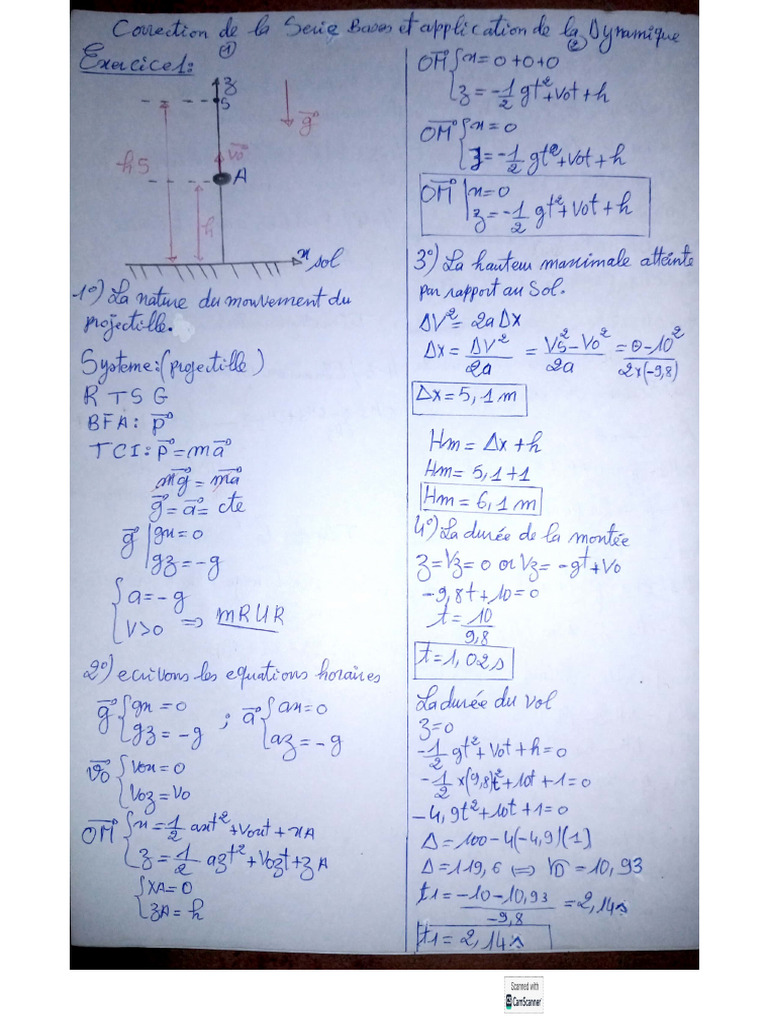 Correction de la Serie Bases et application de la Dynamique
①
②
Exercice1:
z
S
g⃗
v₀⃗
hS
A
h
x
sol
1°) La nature du mouvement du
projectille.
Systeme: (projectille)
R T S G
BFA: p⃗
TCI: p⃗ = ma⃗
mg⃗ = ma⃗
g⃗ = a⃗ = cte
g⃗ | gx = 0
gz = -g
{ a = -g
V>0 ⇒ mRUR
2°) ecrivons les equations horaires
g⃗ { gx = 0 ; a⃗ { ax = 0
gz = -g az = -g
v₀⃗ { Vox = 0
Voz = Vo
OM⃗ { x = 1/2 axt² + Voxt + xA
z = 1/2 azt² + Vozt + zA
{ XA = 0
zA = h
OM⃗ { x = 0+0+0
z = -1/2 gt² + Vot + h
OM⃗ { x = 0
z = -1/2 gt² + Vot + h
OM⃗ | x = 0
z = -1/2 gt² + Vot + h
3°) La hauteur maximale atteinte
par rapport au Sol.
ΔV² = 2a Δx
Δx = ΔV²/2a = (Vs² - Vo²)/2a = (0 - 10²)/(2x(-9,8))
Δx = 5,1 m
Hm = Δx + h
Hm = 5,1 + 1
Hm = 6,1 m
4°) La durée de la montée
z = Vz = 0 or Vz = -gt + Vo
-9,8t + 10 = 0
t = 10/9,8
t = 1,02 s
La durée du vol
z = 0
-1/2 gt² + Vot + h = 0
-1/2 x(9,8)t² + 10t + 1 = 0
-4,9t² + 10t + 1 = 0
Δ = 100 - 4(-4,9)(1)
Δ = 119,6 ⇔ √Δ = 10,93
t1 = (-10 - 10,93)/-9,8 = 2,14 s
t1 = 2,14 s
Scanned with
CS CamScanner